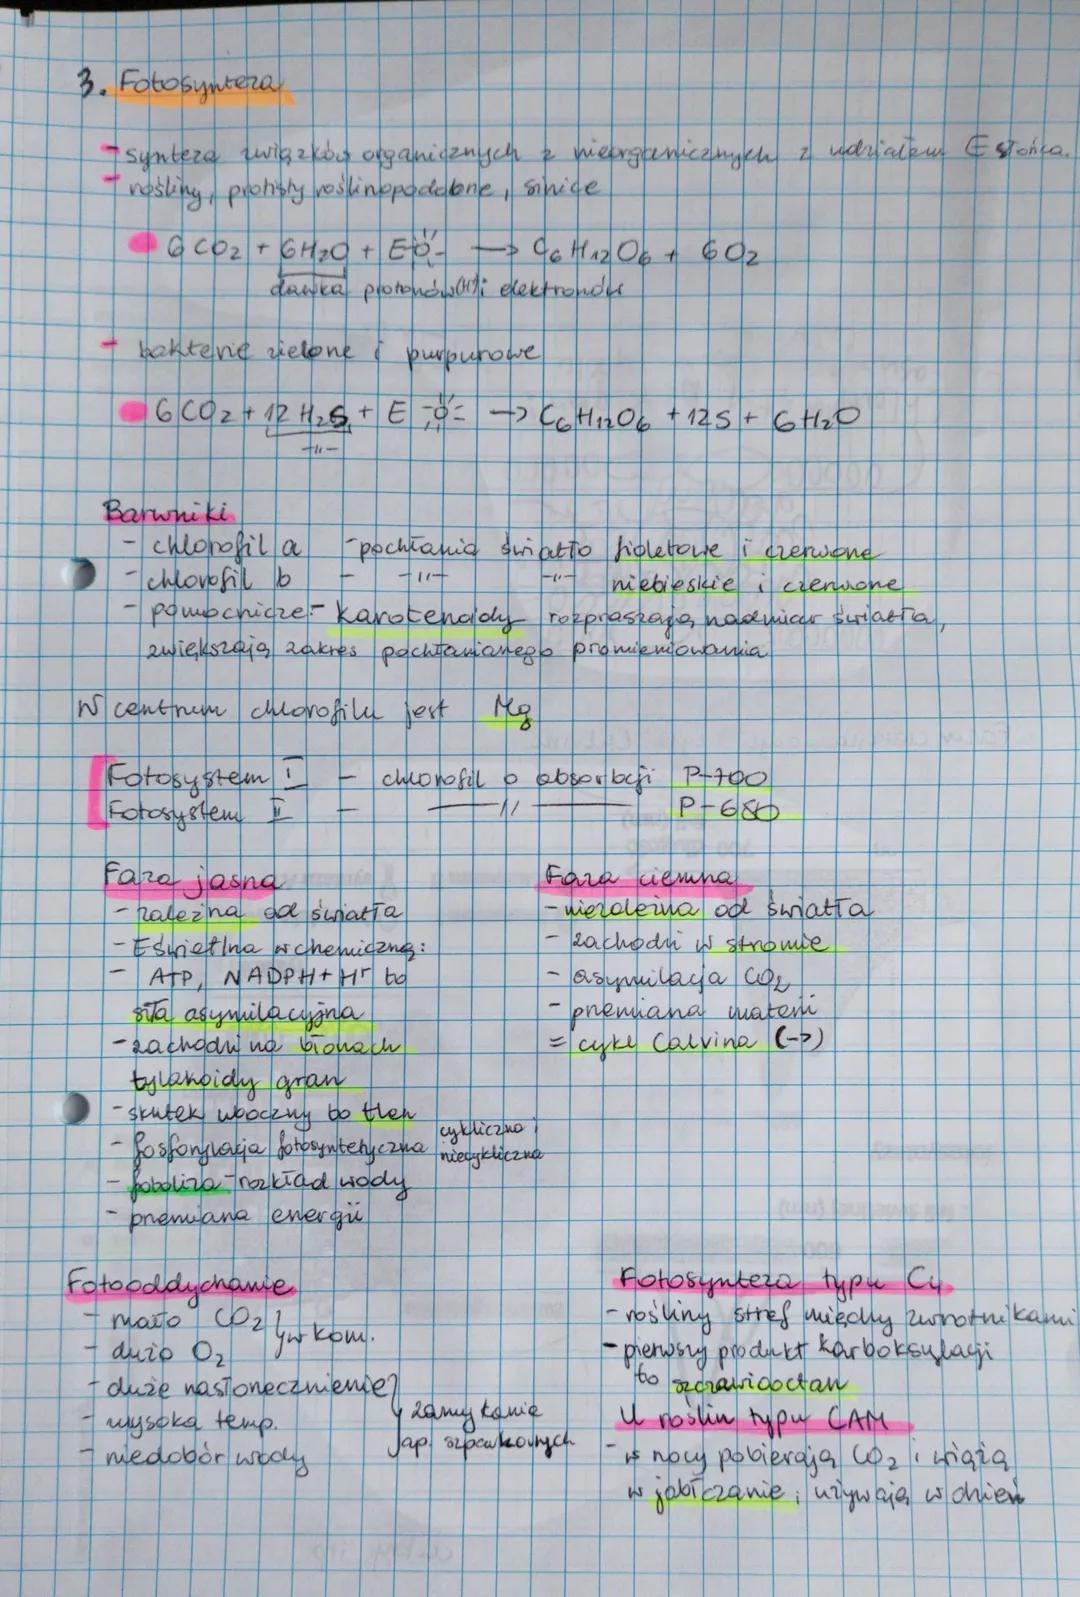 3. Fotosynteza
- synteza związków organicznych z nieorganicznych z udziałem E słońca.
- rośliny, protisty roślinopodobne, sinice
6 CO2 + 6H2O + E → C6H12O6 + 6O2
dawka protonów(H+) i elektronów
- bakterie zielone i purpurowe
6 CO2 + 12 H2S + E → C6H12O6 + 12S + 6H2O
-||-
Barwniki
- chlorofil a - pochłania światło fioletowe i czerwone
- chlorofil b - -||- -||- niebieskie i czerwone
- pomocnicze - karotenoidy rozpraszają nadmiar światła,
zwiększają zakres pochłanianego promieniowania
W centrum chlorofilu jest Mg
Fotosystem I - chlorofil o absorbcji P-700
Fotosystem II - -||- P-680
Faza jasna
- zależna od światła
- Eświetlna w chemiczną:
- ATP, NADPH+H+ to
siła asymilacyjna
- zachodzi na błonach
tylakoidy gran
- skutek uboczny to tlen
- fosforylacja fotosyntetyczna cykliczna i niecykliczna
- fotoliza - rozkład wody
- przemiana energii
Faza ciemna
- niezależna od światła
- zachodzi w stromie
- asymilacja CO2
- przemiana materii
= cykl Calvina (->)
Fotooddychanie
- mało CO2 } w kom.
- dużo O2
- duże nasłonecznienie
- wysoka temp. } zamykanie
- niedobór wody ap. szparkowych
Fotosynteza typu C4
- rośliny stref między zwrotnikami
- pierwszy produkt karboksylacji
to szczawiooctan
U roślin typu CAM
- w nocy pobierają CO2 i wiążą
w jabłczanie, używają w dzień